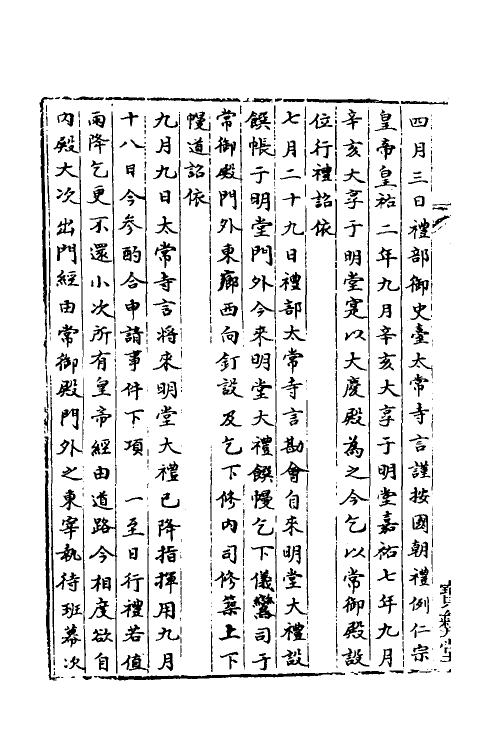 四月三日禮部御史臺太常寺言謹按國朝禮例仁宗
皇帝皇祐二年九月辛亥大享于明堂嘉祐七年九月
辛亥大享于明堂寔以大慶殿為之今乞以常御殿設
位行禮詔依
七月二十九日禮部太常寺言勘會自來明堂大禮設
饌帳于明堂門外今來明堂大禮饌幔乞下儀鸞司于
常御殿門外東廊西向釘設及乞下修內司修築上下
幔道詔依
九月九日太常寺言將來明堂大禮已降指揮用九月
十八日今參酌合申請事件下項　一至日行禮若值
雨降乞更不還小次所有皇帝經由道路今相度欲自
內殿大次出門經由常御殿門外之東宰執待班幕次